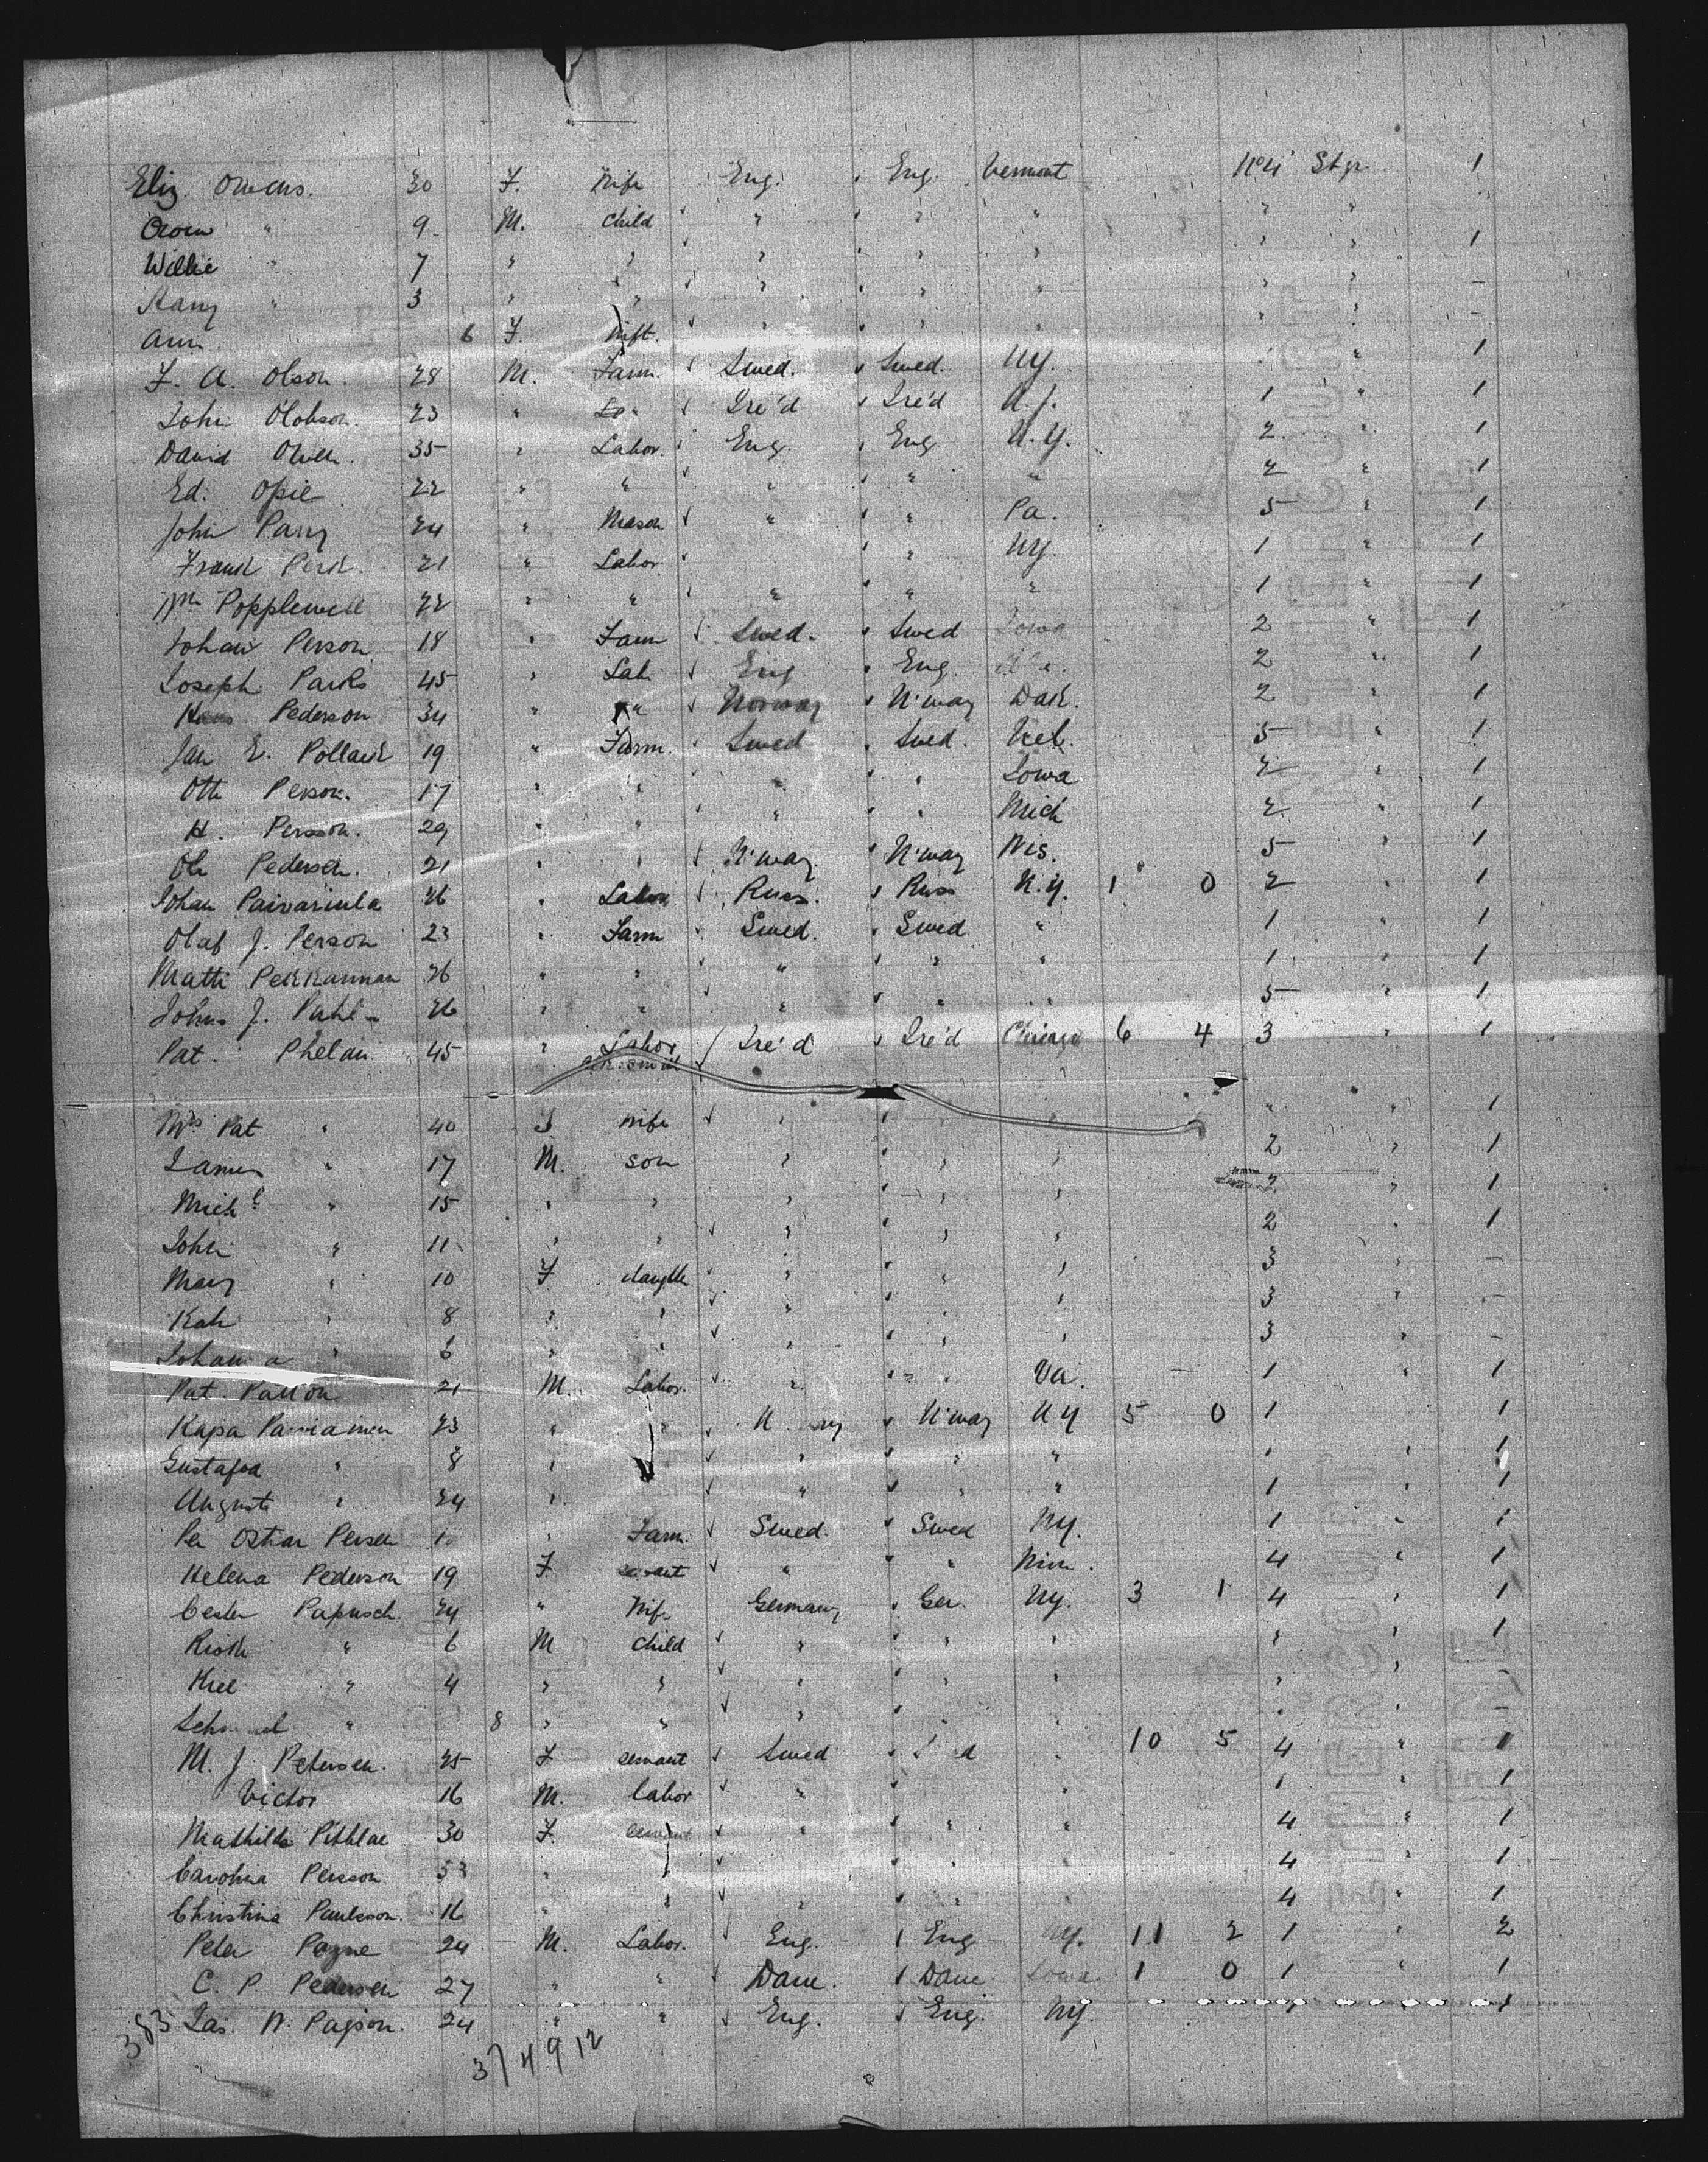 Eliz. Owens. 30 F. Wife Eng. Eng. Vermont No 4 Stgr. 1
Owen " 9 M. Child " " " " "
Willie " 7 " " " " " " " 1
Harry " 3 " " " " " " " -
Ann 6 F. Inft. " " " " " -
F. A. Olson. 28 M. Farm. Swed. Swed. NY. " " 1
John Olobson. 23 " Lo. Ire'd Ire'd N.J. 1 " 1
David Owen. 35 " Labor. Eng. Eng N.Y. 2. " 1
Ed. Opie 22 " " " " " 2 " 1
John Parry 24 " Mason " " Pa. 5 " 1
Frank Perk. 21 " Labor " NY. 1 " 1
Wm Popplewell 22 " " " " " 1 " 1
Johan Person 18 " Farm Swed. Swed Iowa 2 " 1
Joseph Parks 45 " Lab Eng Eng. 2 " 1
Hans Pederson 34 " " Norway N'way Dak. 2 " 1
Jan E. Pollack 19 " Farm. Swed Swed. Neb. 5 " 1
Otto Person. 17 " " " " Iowa 2 " 1
H. Persson. 29 " " " " Mich 2 " 1
Ole Pedersen. 21 " " N'way. N'way Wis. 5 " 1
Johan Paivarinta 26 " Labor Russ. Russ N.Y. 1 0 2 " 1
Olaf J. Person 23 " Farm Swed. Swed " 1 " 1
Matti Pekkannan 26 " " " " " 1 " 1
Johns J. 26 " " " " " 5 " 1
Pat. Phelan 45 " Labor Ire'd Ire'd Chicago 6 4 3 " 1
Mrs Pat " 40 F Wife " " " " " 1
James " 17 M. son " " " 2 " 1
Michl " 15 " " " " " 2 " 1
John " 11 " " " " " 2 " 1
Mary " 10 F daughter " " " 3 " -
Kate " 8 " " " " " 3 " -
Johanna " 6 " " " " " 3 " -
Pat. Patton 21 M. Labor. " " Va. 1 " 1
Kapa 23 " " N'way N'way NY 5 0 1 1
Gustafva " 8 " " " " " " 1
August " 24 " " " " 1 " 1
Per Oskar Persen " Farm. Swed. Swed NY. 1 " 1
Helena Pederson 19 F servant " " Min. 4 " 1
Papusch. 24 " Wife Germany Ger. NY. 3 1 4 " 1
6 M child " " " " " 1
4 " " " " " " " -
" 8 " " " " " " " -
M. J. Petersen. 25 F servant Swed " 10 5 4 " 1
Victor 16 M. labor " " " 1 " 1
Mathilda 30 F. servant " " " 4 " 1
Carolina Persson 53 " " " " 4 " 1
Christina Paulsson. 16 " " " " 4 " 1
Peter Payne 24 M. Labor. Eng. Eng NY. 11 2 1 " 2
C. P. Pedersen 27 " " Dane. Dane Iowa 1 0 1 " 1
Jas. W. 24 " " Eng. Eng. NY. 1
383
37 4 9 12